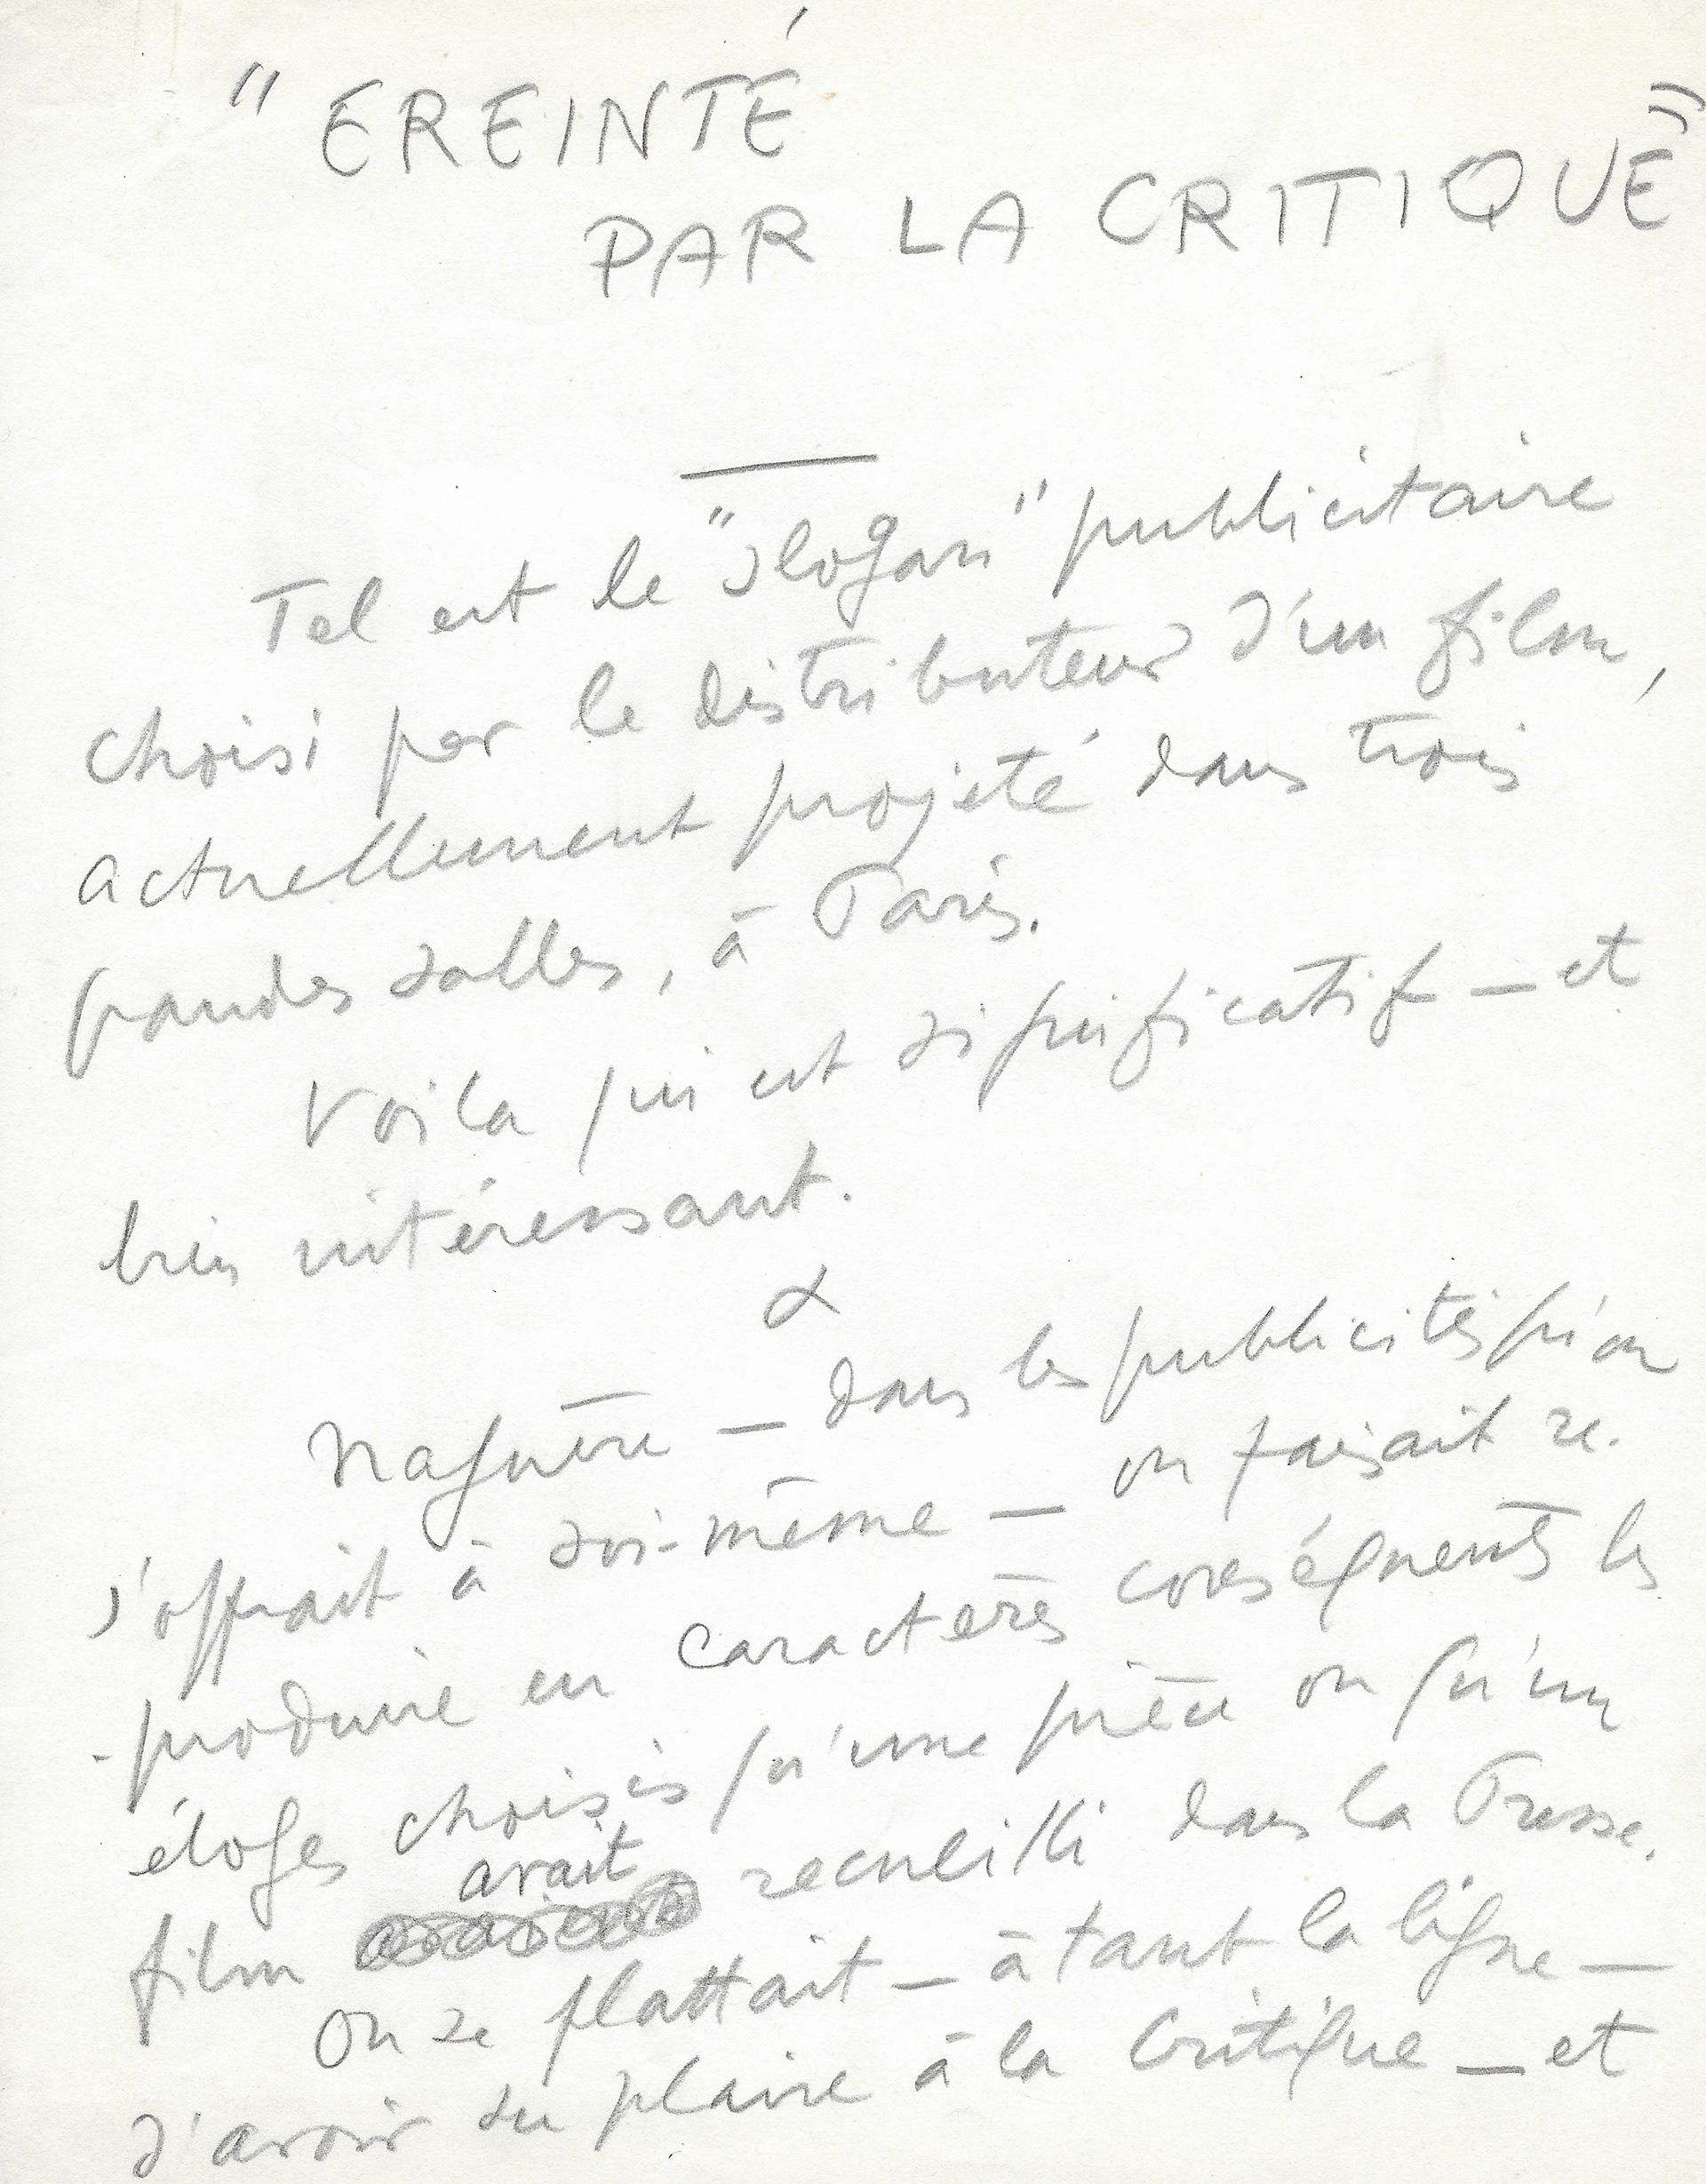 " EREINTÉ
PAR LA CRITIQUE "
Tel est le "slogan" publicitaire
choisi par le distributeur d'un film,
actuellement projeté dans trois
grandes salles, à Paris.
Voila qui est significatif — et
bien intéressant.
Naguère — dans les publicités qu'on
s'offrait à soi-même — on faisait re-
-produire en caractères conséquents les
éloges choisis qu'une pièce ou qu'un
film avait recueilli dans la Presse.
On se flattait — à tant la ligne —
d'avoir su plaire à la Critique — et